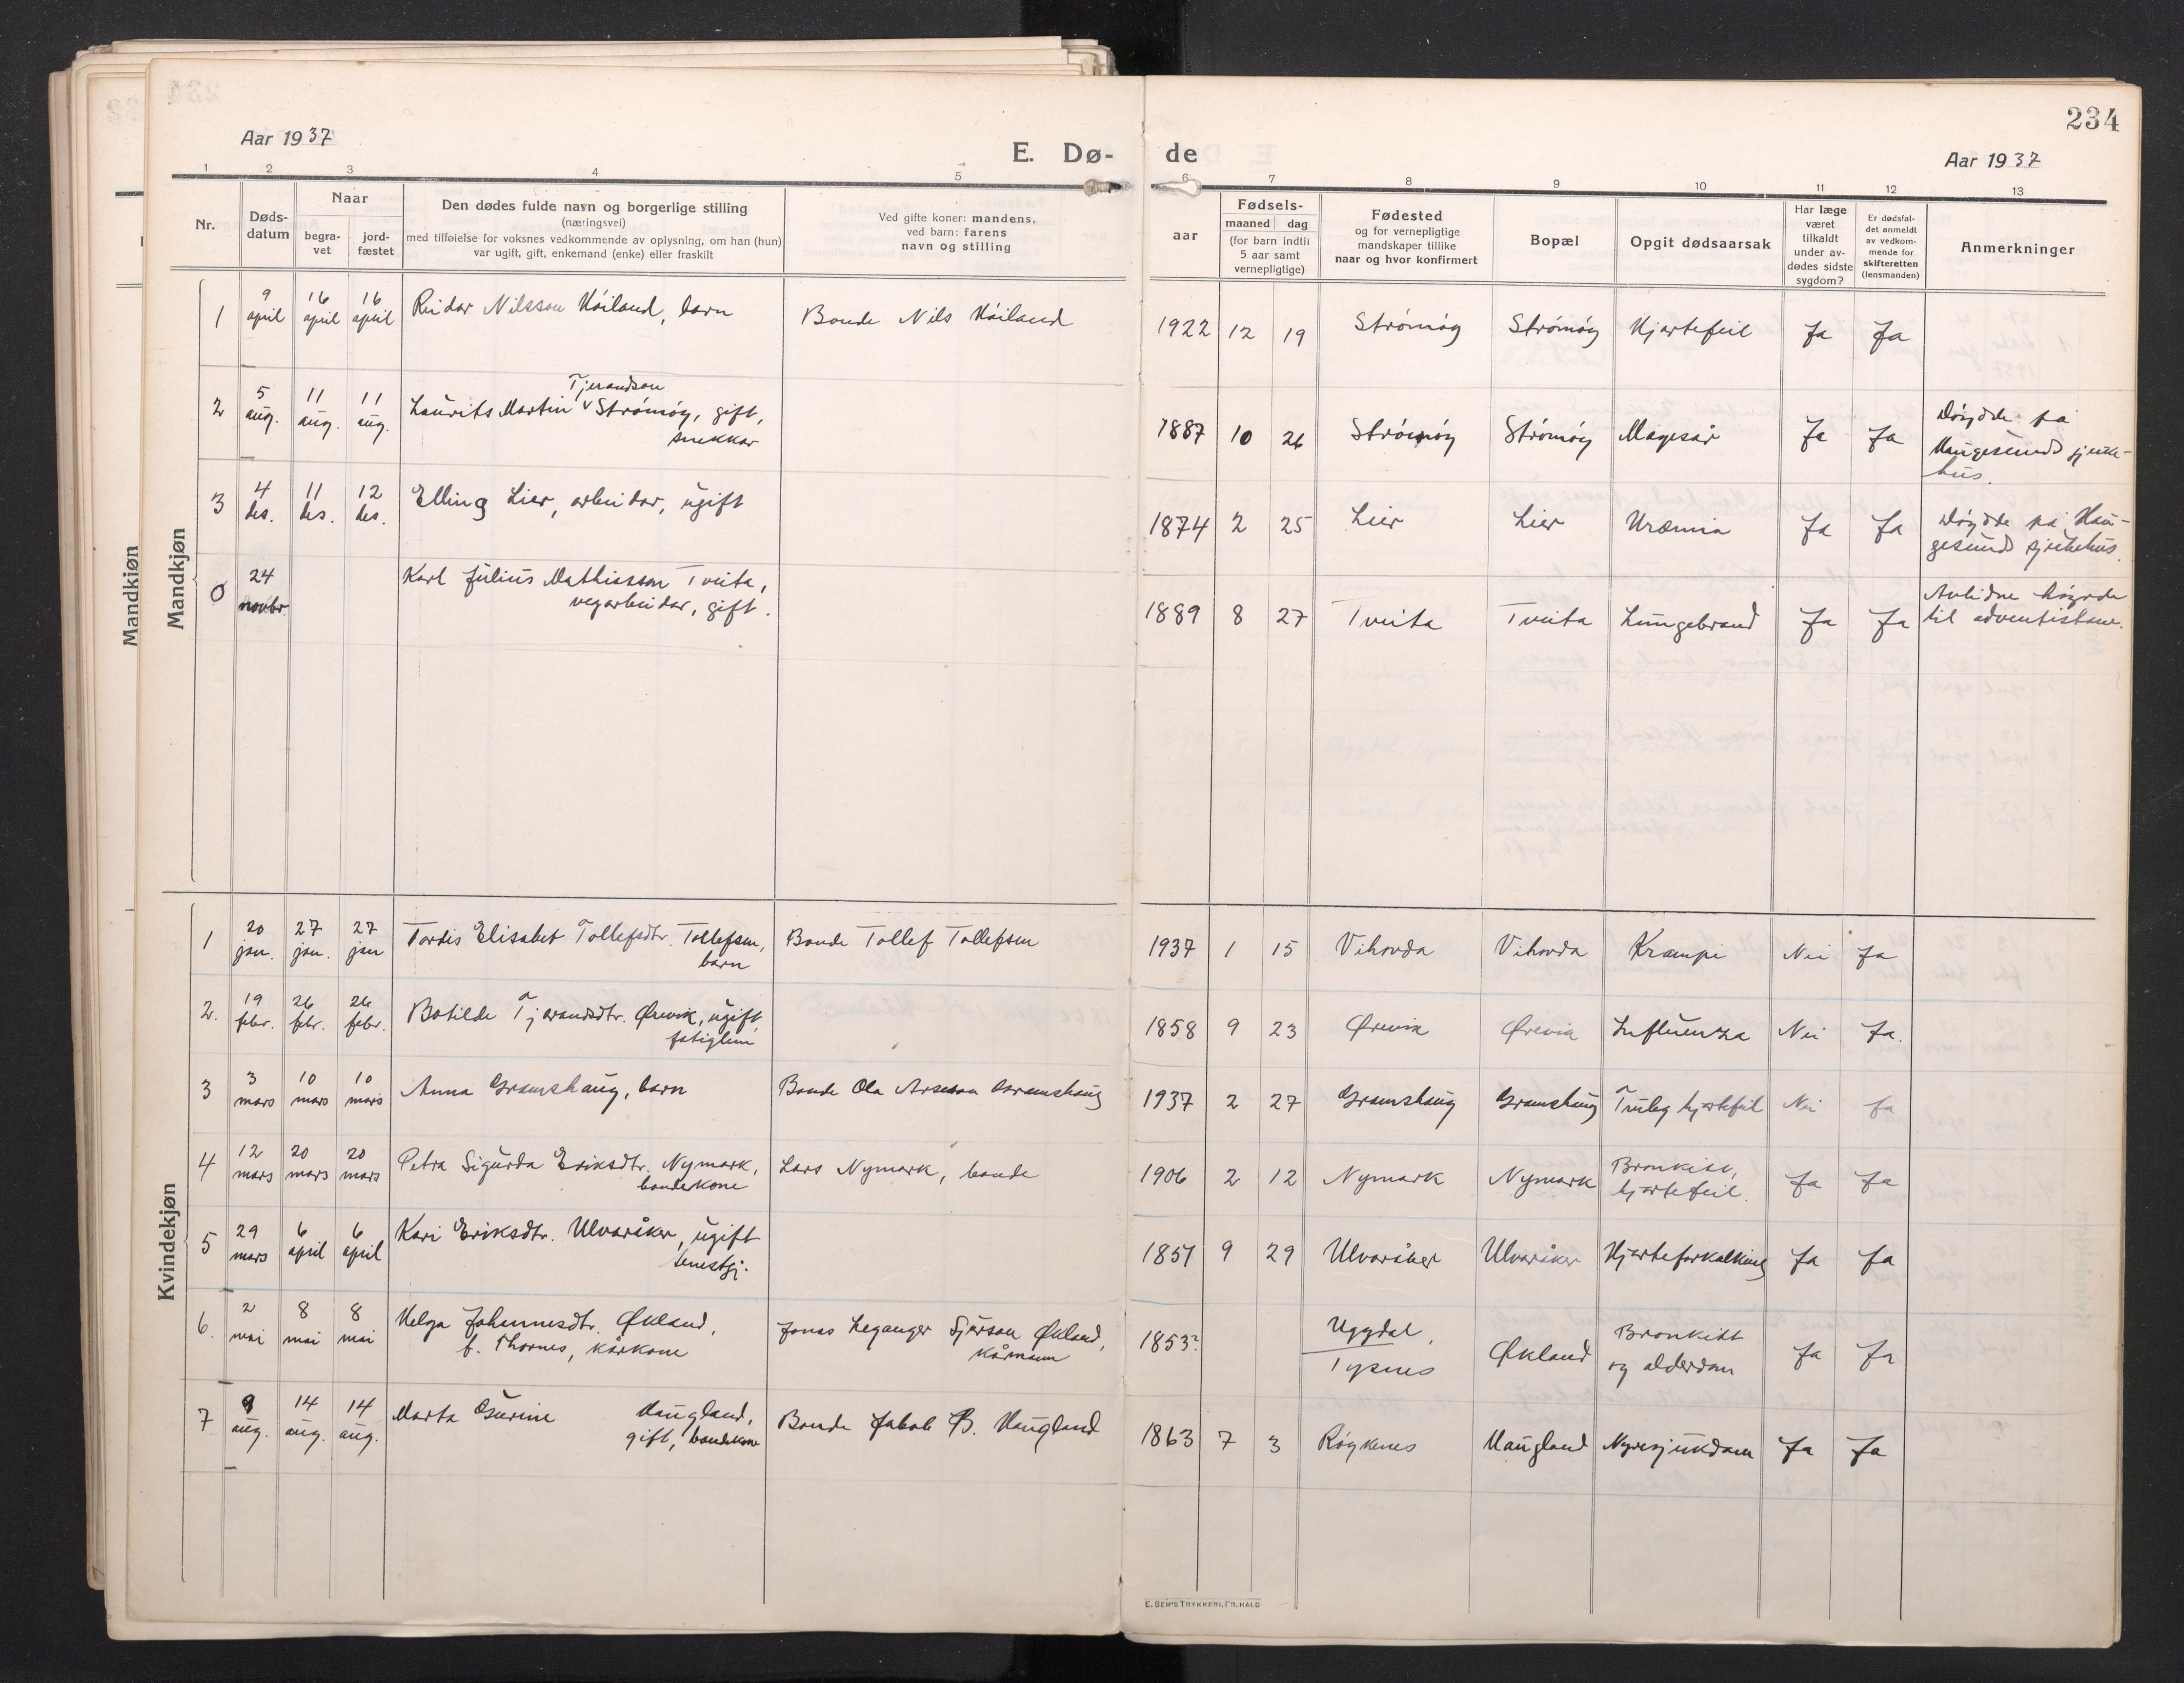 234
Aar 1937
E. Dø-
de
Aar 1937
1 2 3 4 5 6 7 8 9 10 11 12 13
Nr.
Døds-
datum
Naar
begra-
vet
jord-
fæstet
Den dødes fulde navn og borgerlige stilling
(næringsvei)
med tilføielse for voksnes vedkommende av oplysning, om han (hun)
var ugift, gift, enkemand (enke) eller fraskilt
Ved gifte koner: mandens,
ved barn: farens
navn og stilling
aar
Fødsels-
maaned dag
(for barn indtil
5 aar samt
vernepligtige)
Fødested
og for vernepligtige
mandskaper tillike
naar og hvor konfirmert
Bopæl
Opgit dødsaarsak
Har læge
været
tilkaldt
under av-
dødes sidste
sygdom?
Er dødsfal-
det anmeldt
av vedkom-
mende for
skifteretten
(lensmanden)
Anmerkninger
Mandkjøn
Mandkjøn
1 9 april 16 april 16 april Reidar Nilsson Høiland, barn Bonde Nils Høiland 1922 12 19 Strømøy Strømøy Hjartefeil Ja Ja
Tjerandson
2 5 aug. 11 aug. 11 aug. Laurits Martin Strømøy, gift, 1887 10 26 Strømøy Strømøy Magesår Ja Ja Døydde på
snekkar Haugesunds sjuke-
hus.
3 4 des. 11 des. 12 des. Elling Lier, arbeidar, ugift 1874 2 25 Lier Lier Uræmia Ja Ja Døydde på Hau-
gesunds sjukehus.
0 24 novbr. Karl Julius Mathiasson Tveita, 1889 8 27 Tveita Tveita Lungebrand Ja Ja Avlidne høyrde
vegarbeidar, gift. til adventistane.
Kvindekjøn
1 20 jan. 27 jan. 27 jan Tordis Elisabet Tollefsdtr. Tollefsen, Bonde Tollef Tollefsen 1937 1 15 Vihovda Vihovda Krampi Nei Ja
barn
2. 19 febr. 26 febr. 26 febr. Botilde Tjerandsdtr. Ørevik, ugift, 1858 9 23 Ørevik Ørevik Influenza Nei Ja.
fatiglem
3 3 mars 10 mars 10 mars Anna Gramshaug, barn Bonde Ola Arneson Gramshaug 1937 2 27 Gramshaug Gramshaug Truleg hjartefeil Nei Ja
4 12 mars 20 mars 20 mars Petra Sigurda Eriksdtr. Nymark, Lars Nymark, bonde 1906 2 12 Nymark Nymark Bronkitt, Ja Ja
bondekone hjartefeil.
5 29 mars 6 april 6 april Kari Eriksdtr. Ulvaråker, ugift 1851 9 29 Ulvaråker Ulvaråker Hjarteforkalking Ja Ja
tenestgj.
6. 2 mai 8 mai 8 mai Helga Johannesdtr. Økland, Jonas Leganger Sjurson Økland, 1853? Uggdal, Økland Bronkitt Ja Ja
f. Thornes, kårkone kårmann Tysnes og alderdom
7 9 aug. 14 aug. 14 aug. Marta Gurine Haugland, Bonde Jakob B. Haugland 1863 7 3 Røyknes Haugland Nyresjukdom Ja Ja
gift, bondekone
E. SEM'S TRYKKERI, FR. HALD